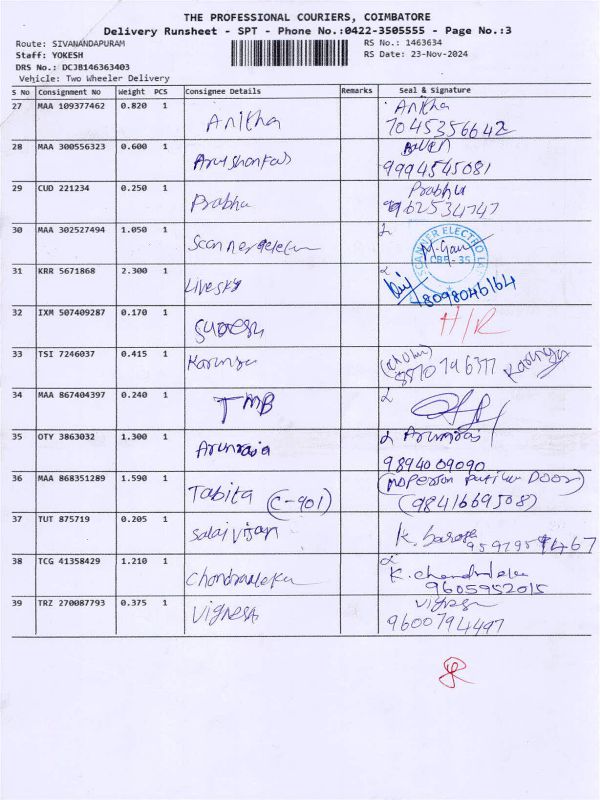 THE PROFESSIONAL COURIERS, COIMBATORE
Delivery Runsheet - SPT - Phone No.:0422-3505555 - Page No.:3
Route: SIVANANDAPURAM
Staff: YOKESH
DRS No.: DCJB146363403
Vehicle: Two Wheeler Delivery
RS No.: 1463634
RS Date: 23-Nov-2024
S No Consignment No Weight PCS Consignee Details Remarks Seal & Signature
27 MAA 109377462 0.820 1 Anitha Anitha
7045356642
28 MAA 300556323 0.600 1
9994545081
29 CUD 221234 0.250 1 Prabhu Prabhu
9962534747
30 MAA 302527494 1.050 1
SCANNER ELECTRO
CBE-35
31 KRR 5671868 2.300 1 Livesky
8098046164
32 IXM 507409287 0.170 1 Suresh H/R
33 TSI 7246037 0.415 1 Karunya Karunya
34 MAA 867404397 0.240 1 TMB
35 OTY 3863032 1.300 1 Arunraja Arunraj
9894009090
36 MAA 868351289 1.590 1 Tabita (C-901) Door
(9841669508)
37 TUT 875719 0.205 1 K.
38 TCG 41358429 1.210 1 Chandraleka K. Chandraleka
9605952015
39 TRZ 270087793 0.375 1 Vignesh Vignesh
9600794497